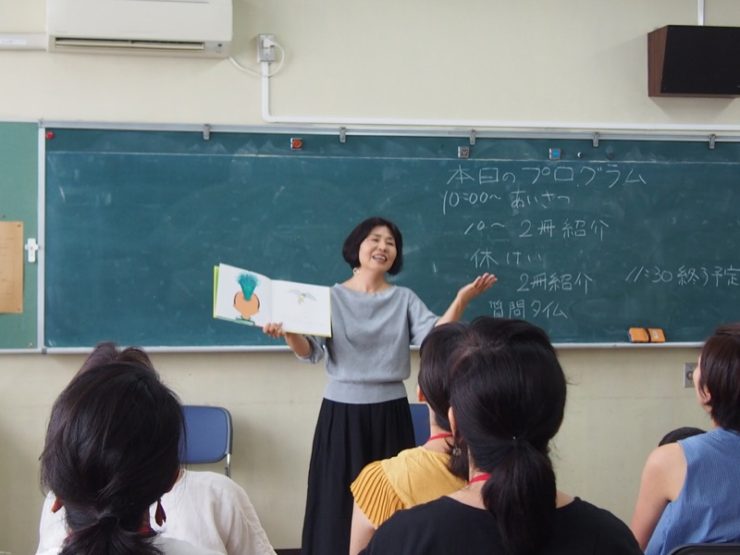 本日のプログラム
10:00〜 あいさつ
10〜 2冊紹介
休けい
2冊紹介 11:30終了予定
質問タイム